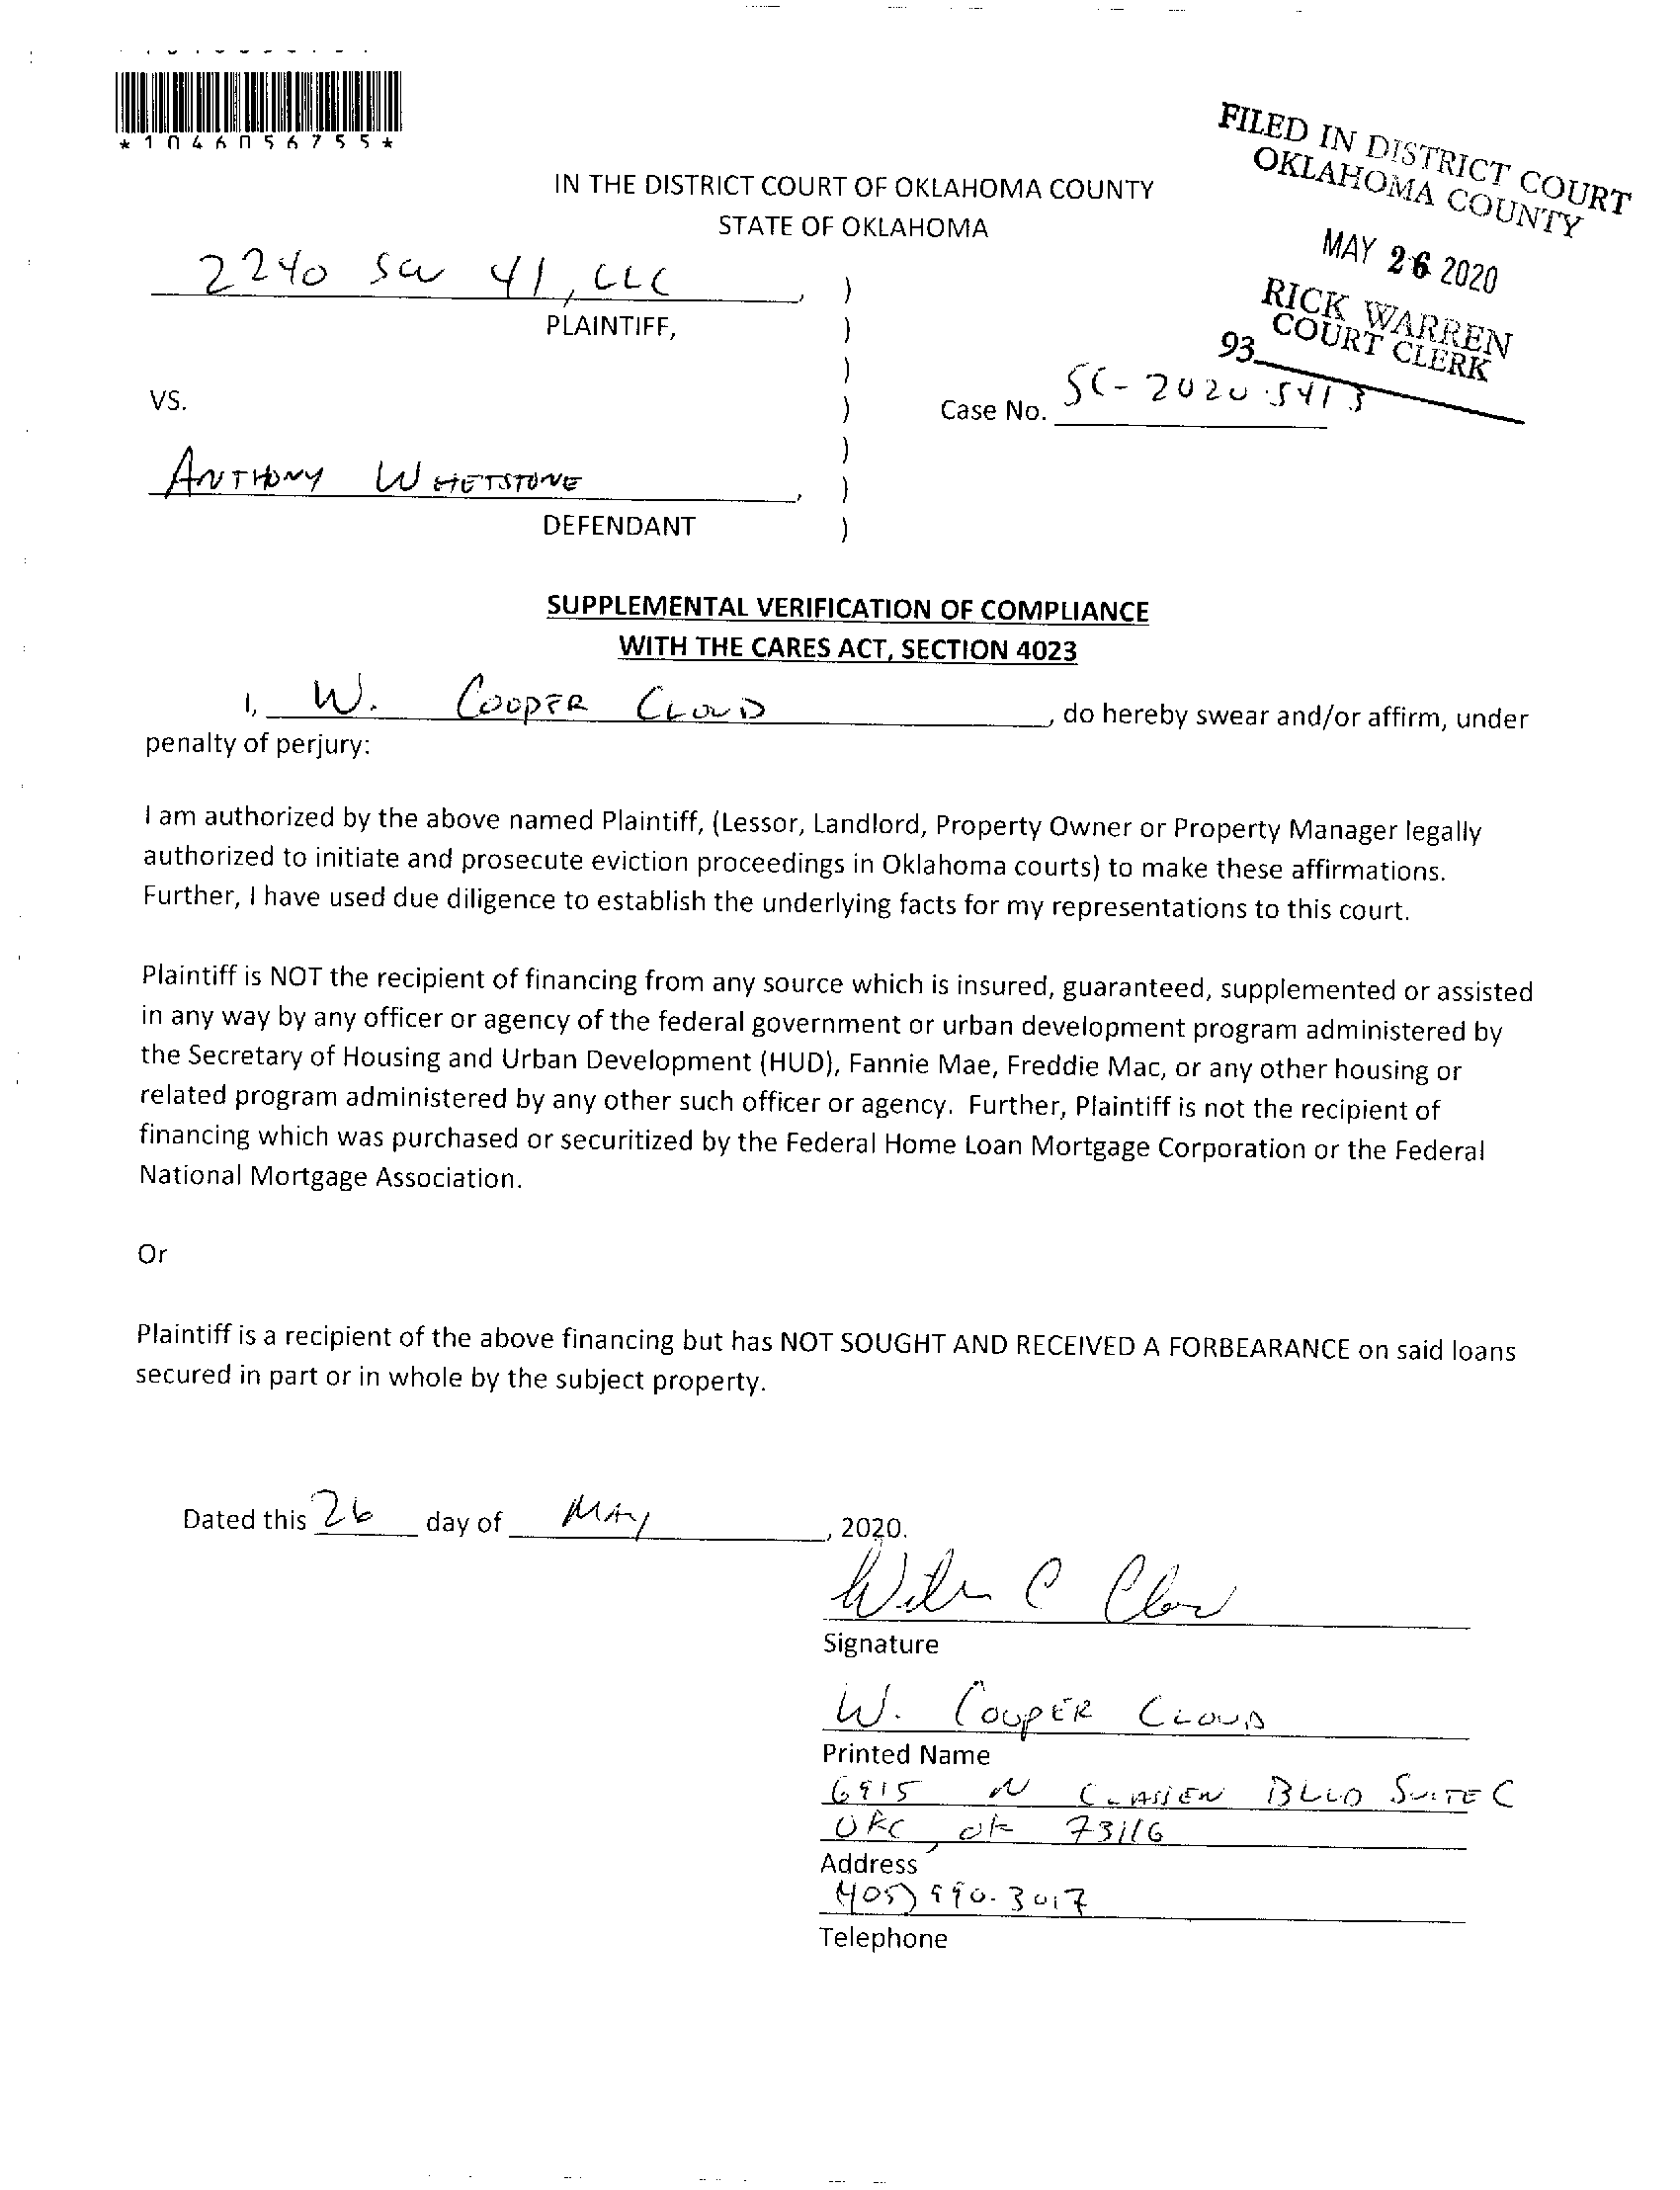 *1046056755*
FILED IN DISTRICT COURT
OKLAHOMA COUNTY
MAY 26 2020
RICK WARREN
COURT CLERK
93
IN THE DISTRICT COURT OF OKLAHOMA COUNTY
STATE OF OKLAHOMA
2240 SW 41, LLC , )
PLAINTIFF, )
)
VS. )
Case No. SC-2020-5413
)
ANTHONY WHETSTONE , )
DEFENDANT )
SUPPLEMENTAL VERIFICATION OF COMPLIANCE
WITH THE CARES ACT, SECTION 4023
I, W. COOPER CLOUD , do hereby swear and/or affirm, under
penalty of perjury:
I am authorized by the above named Plaintiff, (Lessor, Landlord, Property Owner or Property Manager legally
authorized to initiate and prosecute eviction proceedings in Oklahoma courts) to make these affirmations.
Further, I have used due diligence to establish the underlying facts for my representations to this court.
Plaintiff is NOT the recipient of financing from any source which is insured, guaranteed, supplemented or assisted
in any way by any officer or agency of the federal government or urban development program administered by
the Secretary of Housing and Urban Development (HUD), Fannie Mae, Freddie Mac, or any other housing or
related program administered by any other such officer or agency. Further, Plaintiff is not the recipient of
financing which was purchased or securitized by the Federal Home Loan Mortgage Corporation or the Federal
National Mortgage Association.
Or
Plaintiff is a recipient of the above financing but has NOT SOUGHT AND RECEIVED A FORBEARANCE on said loans
secured in part or in whole by the subject property.
Dated this 26 day of MAY , 2020.
Signature
W. COOPER CLOUD
Printed Name
6915 N CLASSEN BLVD SUITE C
OKC, OK 73116
Address
(405) 990-3017
Telephone